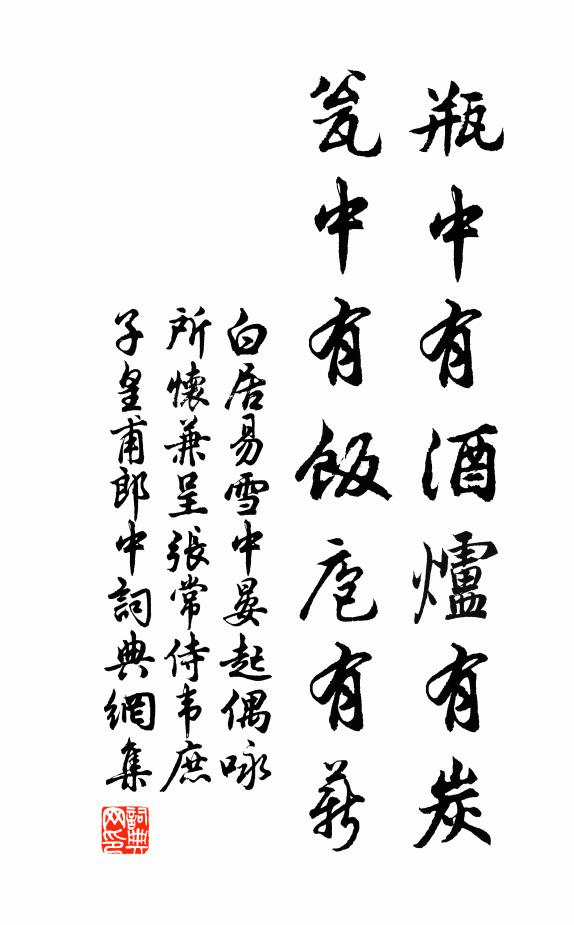 瓶中有酒爐有炭
瓮中有飯庖有薪
白居易雪中晏起偶咏
所懷兼呈張常侍韦庶
子皇甫郎中詞典網集
詞典
网印